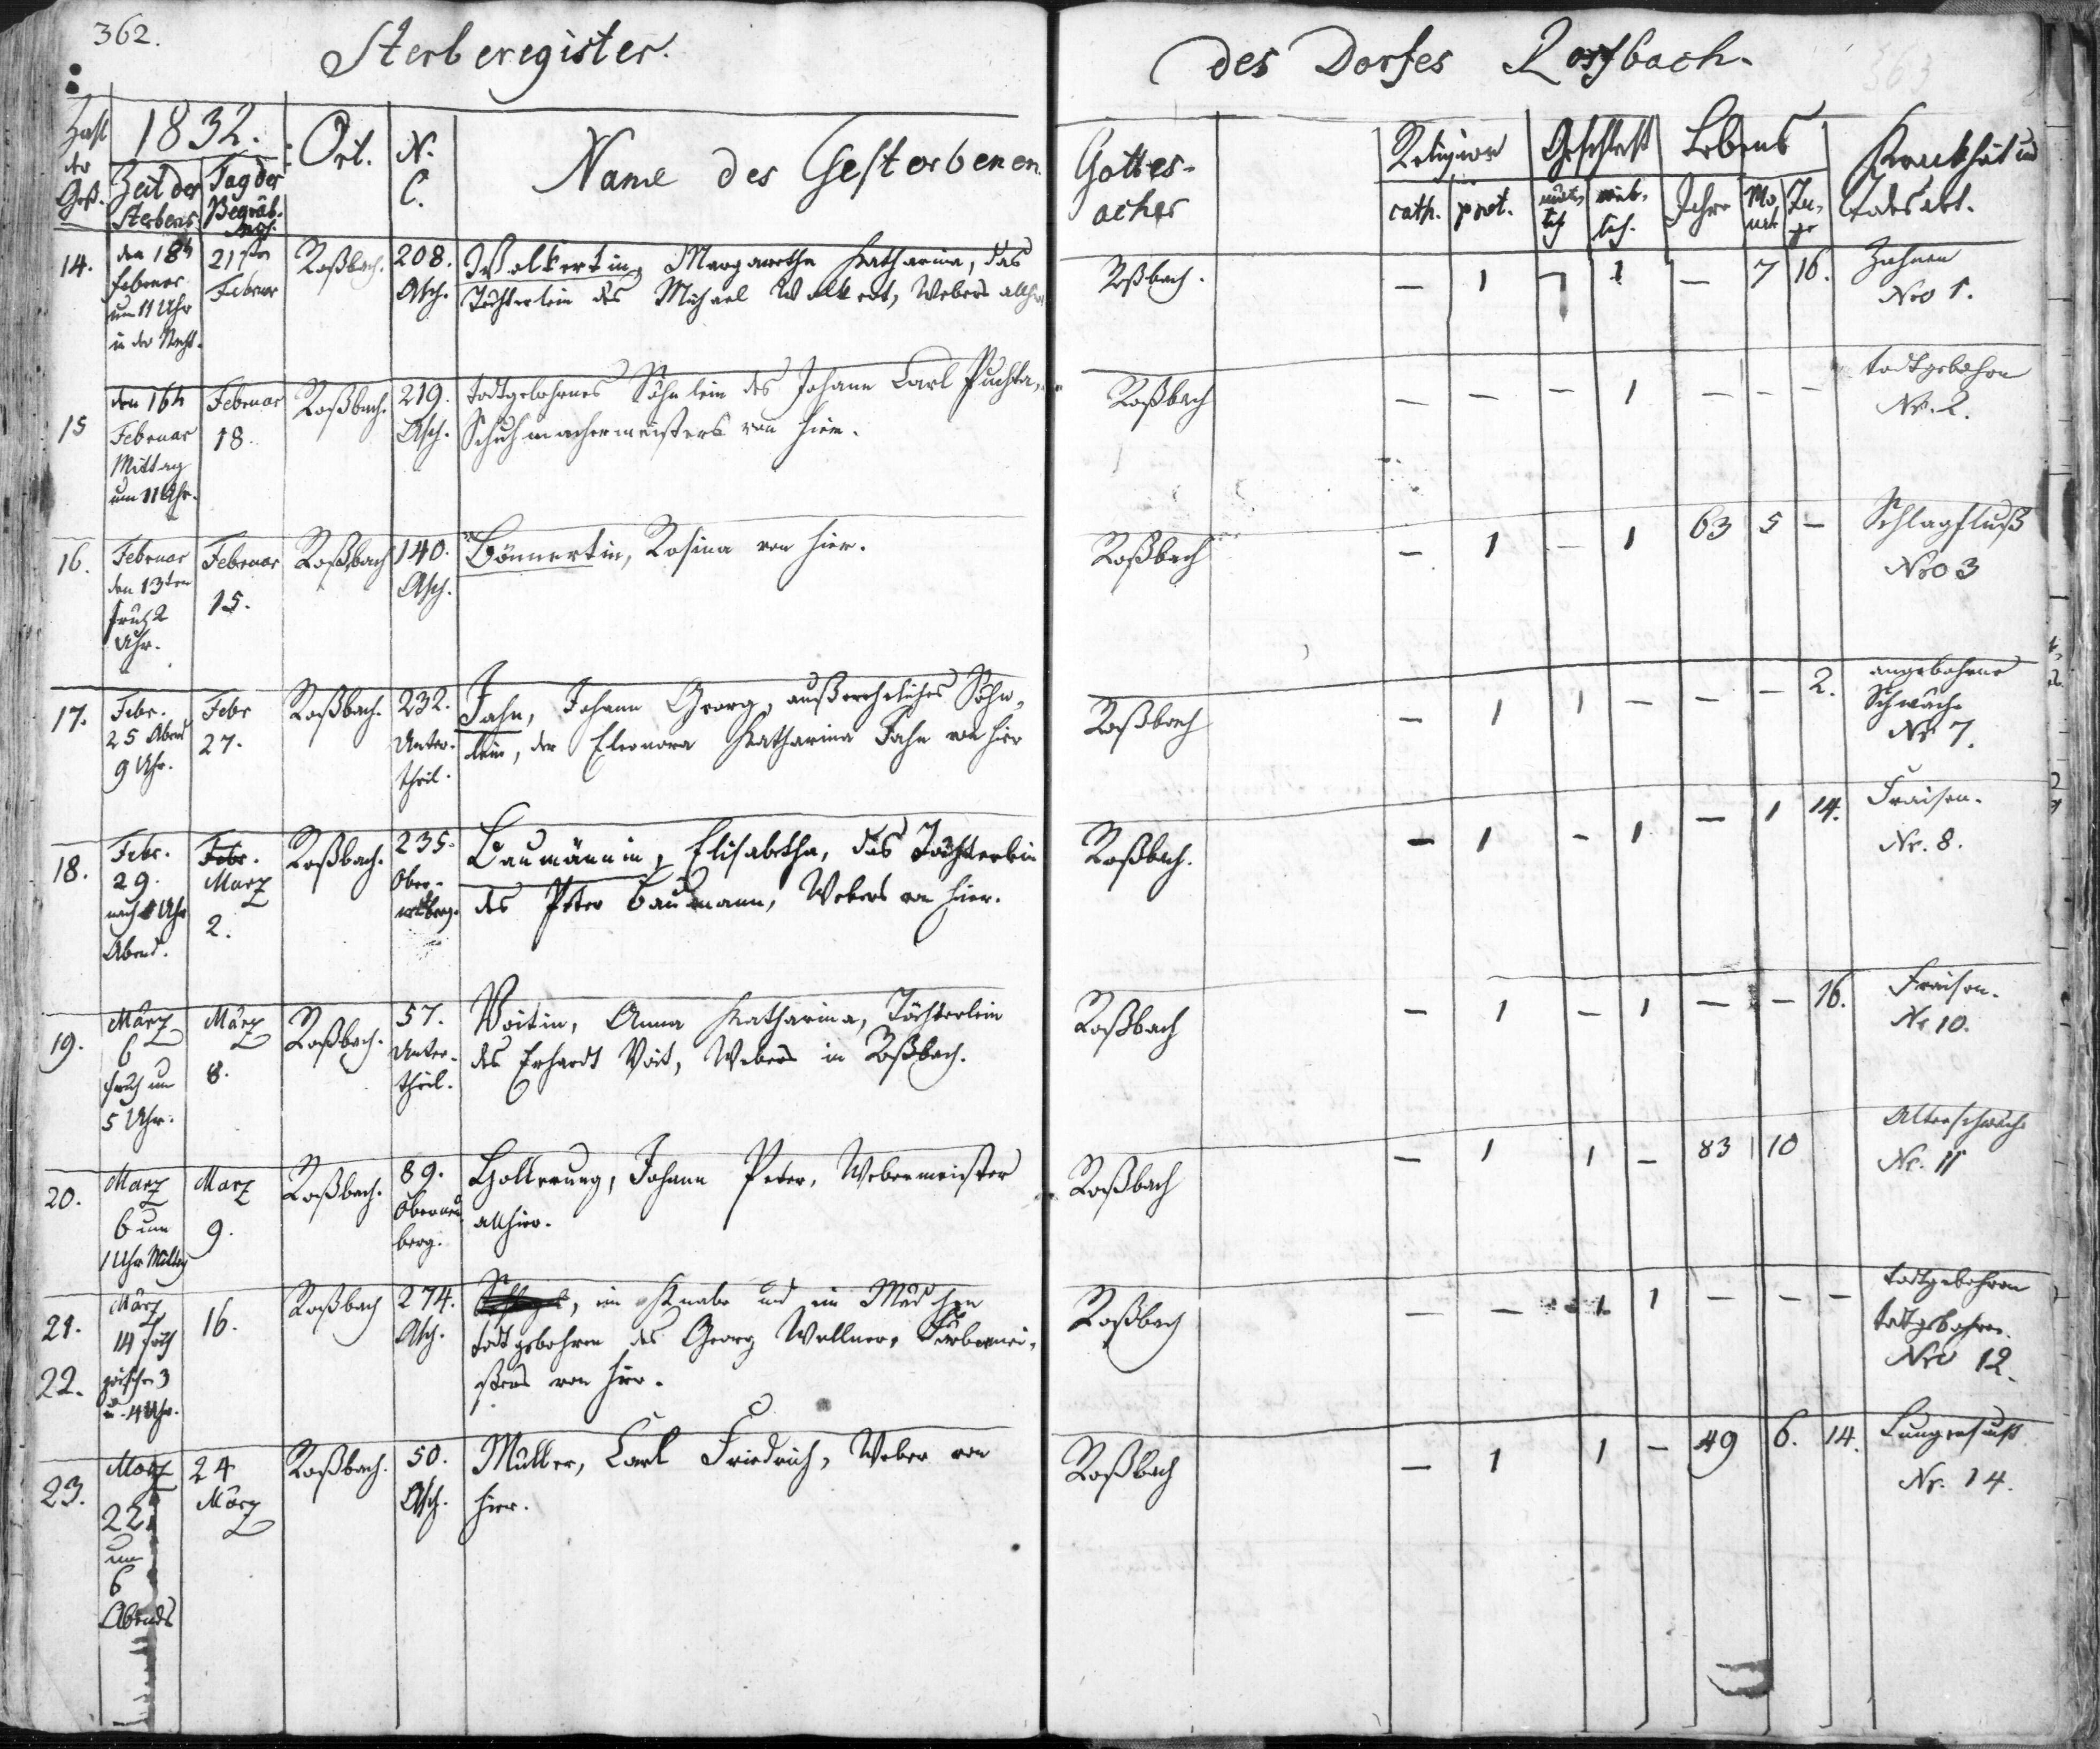 362.
Sterberegister.
des Dorfes Rossbach.
363
Zahl der Gest.
1832.
Zeit des Sterbens
Tag der Begräb.
Ort.
N. C.
Name des Gestorbenen.
Gottes-
acker
Religion
cath. prot.
Geschlecht
männ- lich weib- lich.
Lebens
Jahre Mo nat Ta- ge
Krankheit und
Todesart.
14.
den 18t
Februar
um 11 Uhr
in der Nacht.
21sten
Februar
Roßbach.
208.
Asch.
Wolfertin, Margaretha Katharina, das
Töchterlein des Michael Wolfert, Webers allhier
Roßbach.
— 1 — 1 — 7 16.
Zahnen
Nro 1.
15
den 16t
Februar
Mittag
um 11 Uhr.
Februar
18.
Roßbach.
219.
Asch.
todtgebohrnes Söhnlein des Johann Carl Puchta,
Schuhmachermeisters von hier.
Roßbach
— — — 1 — — —
todtgebohren
Nr. 2.
16.
Februar
den 13ten
früh 2
Uhr.
Februar
15.
Roßbach
140.
Asch.
Rosina von hier.
Roßbach
— 1 — 1 63 5 —
Schlagfluß
Nro 3
17.
Febr.
25 Abend
9 Uhr.
Febr
27.
Roßbach.
232.
Unter-
theil.
Jahn, Johann Georg, außereheliches Söhn-
lein, der Eleonora Katharina Jahn von hier
Roßbach
— 1 1 — — — 2.
angebohrne
Schwäche
Nr 7.
18.
Febr.
29.
nach Uhr
Abend.
Febr.
März
2.
Roßbach.
235.
Ober-
neuberg.
Baumännin, Elisabetha, das Töchterlein
des Peter Baumann, Webers von hier.
Roßbach.
— 1 — 1 — 1 14.
Fraisen.
Nr. 8.
19.
März
6
früh um
5 Uhr.
März
8.
Roßbach.
57.
Unter-
theil.
Voitin, Anna Katharina, Töchterlein
des Erhardt Voit, Webers in Roßbach.
Roßbach
— 1 — 1 — — 16.
Fraisen.
Nr 10.
20.
März
6 um
1 Uhr Mittag
März
9.
Roßbach.
89.
Oberneu
berg.
Hollerung, Johann Peter, Webermeister
allhier.
Roßbach
— 1 1 — 83 10
Altersschwäche
Nr. 11
21.
22.
März
14 früh
zwischen 3
u. 4 Uhr.
16.
Roßbach
274.
Asch.
ein Knabe und ein Mädchen
todtgebohren des Georg Wollner, Färbermei-
sters von hier.
Roßbach
— — 1 1 — — —
todtgebohren
todtgebohren.
Nro 12.
23.
März
22.
um
6
Abends
24
März
Roßbach.
50.
Asch.
Müller, Carl Friedrich, Weber von
hier.
Roßbach
— 1 1 — 49 6. 14.
Lungensucht
Nr. 14.